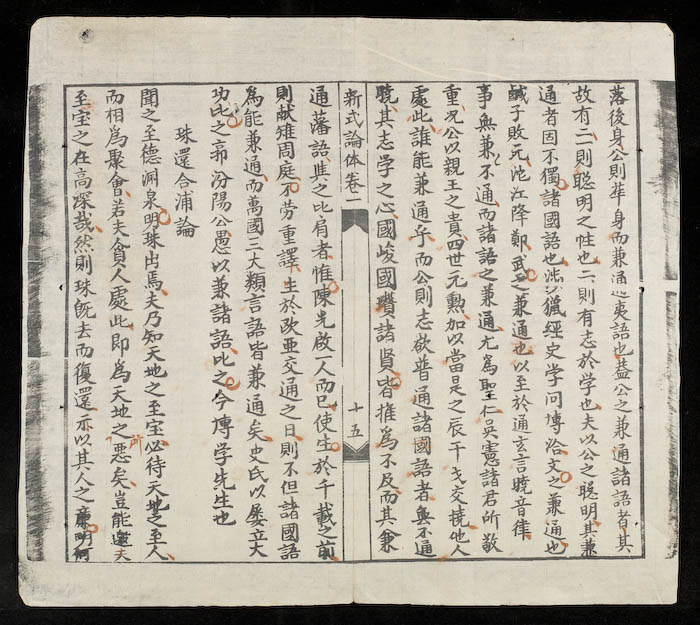 落後身公則華身而兼通夷語也蓋公之兼通諸語者其
故有二一則聰明之性也二則有志於学也夫以公之聡明其兼
通者固不獨諸國語也涉獵經史学问博洽文之兼通也
鹹子敗元沱江降鄭武之兼通也以至於通玄言曉音律
事無兼不通而諸語之兼通尤為聖仁吳憲諸君所敬
重况公以親王之貴四世元勲加以當是之辰干戈交擾他人
處此誰能兼通乎而公則志欲普通諸國語者無不通
曉其志学之心國峻國瓚諸賢皆推為不及而其兼
新式論体卷一
十五
通藩語之比肩者惟陳光啟一人而已使生於千載之前
則献雉周庭不劳重譯生於欧亜交通之日則不但諸國語
為能兼通而萬國三大類言語皆兼通矣史氏以屡立大
功比之郭汾陽公愚以兼諸語比之今博学先生也
珠還合浦論
聞之至德渊泉明珠出焉夫乃知天地之至宝必待天地之至人
而相為聚會若夫貪人處此即為天地之所悪矣豈能還夫
至宝之在高深哉然則珠既去而復還亦以其人之廉明何